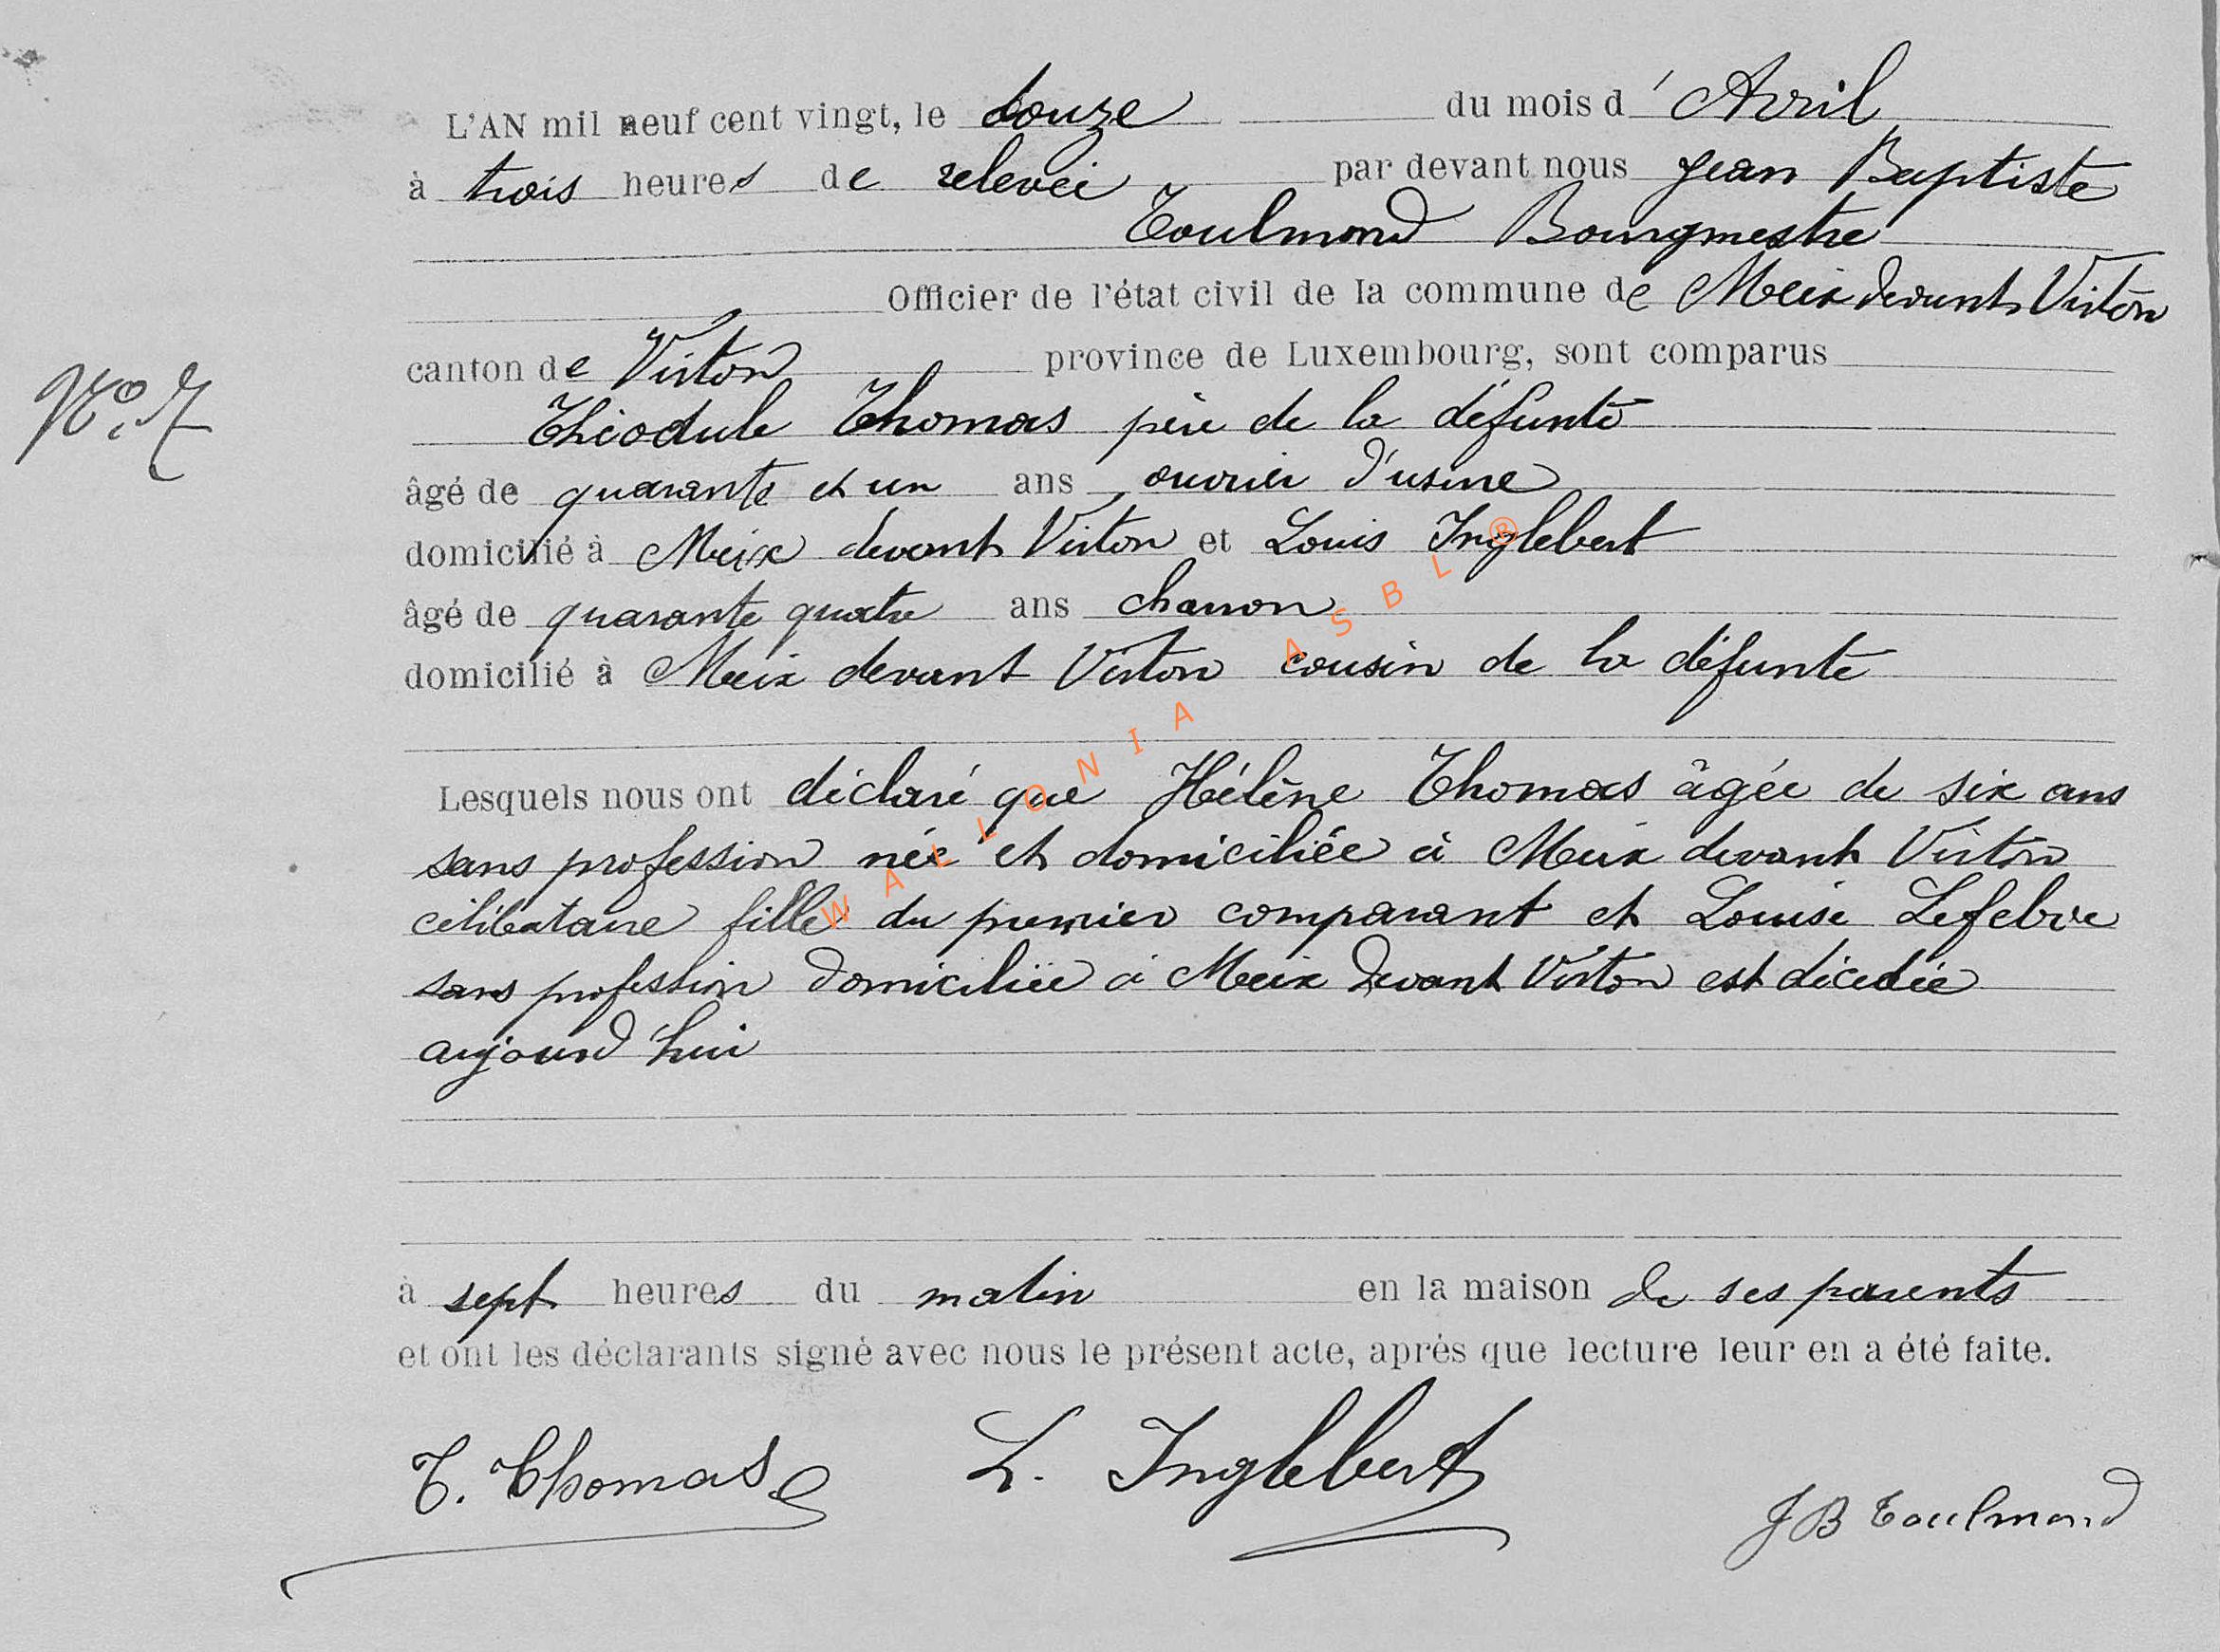 L'AN mil neuf cent vingt, le douze du mois d'Avril
à trois heures de relevée par devant nous Jean Baptiste
Toulmond Bourgmestre
Officier de l'état civil de la commune de Meix devant Virton
canton de Virton province de Luxembourg, sont comparus
N° 7
Théodule Thomas père de la défunte
âgé de quarante et un ans ouvrier d'usine
domicilié à Meix devant Virton et Louis Inglebert
âgé de quarante quatre ans charron
domicilié à Meix devant Virton cousin de la défunte
Lesquels nous ont déclaré que Hélène Thomas âgée de six ans
sans profession née et domiciliée à Meix devant Virton
célibataire fille du premier comparant et Louise Lefebvre
sans profession domiciliée à Meix devant Virton est décédée
aujourd'hui
à sept heures du matin en la maison de ses parents
et ont les déclarants signé avec nous le présent acte, après que lecture leur en a été faite.
T. Thomas L. Inglebert JB Toulmond
WALLONIA ASBL ®